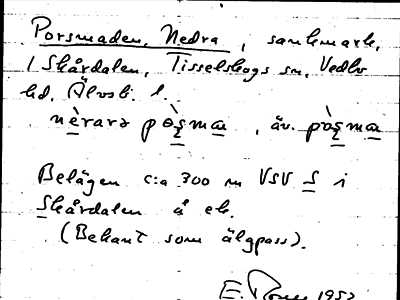 Porsmaden, Nedra, sankmark,
/ Skårdalen, Tisselskogs sn, Vedbo
hd, Älvsb. l.
nèrarə pò̱s̱ma̱, äv. pòs̱ma̱
Belägen c:a 300 m VSV S i
Skårdalen å ek.
(Bekant som älgpass).
E. 1952